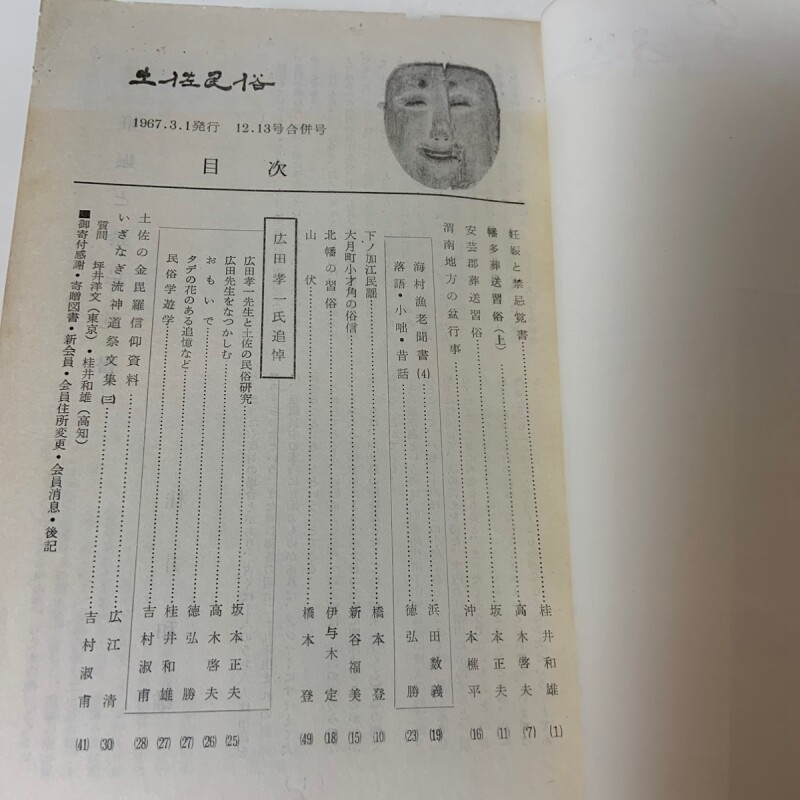 土佐民俗
1967.3.1発行 12.13号合併号
目次
妊娠と禁忌覚書……桂井和雄(1)
幡多葬送習俗(上)……高木啓夫(7)
安芸郡葬送習俗……坂本正夫(11)
渭南地方の盆行事……沖本樵平(16)
海村漁老聞書(4)……浜田数義(19)
落語・小咄・昔話……徳弘勝(23)
下ノ加江民謡……橋本登(10)
大月町小才角の俗信……新谷福美(15)
北幡の習俗……伊与木定(18)
山伏……橋本登(49)
広田孝一氏追悼
広田孝一先生と土佐の民俗研究……坂本正夫(25)
広田先生をなつかしむ……高木啓夫(26)
おもいで……徳弘勝(27)
タデの花のある追憶など……桂井和雄(27)
民俗学遊学……吉村淑甫(28)
土佐の金毘羅信仰資料……広江清(30)
いざなぎ流神道祭文集(三)……吉村淑甫(41)
質問 坪井洋文(東京)・桂井和雄(高知)
■御寄付感謝・寄贈図書・新会員・会員住所変更・会員消息・後記